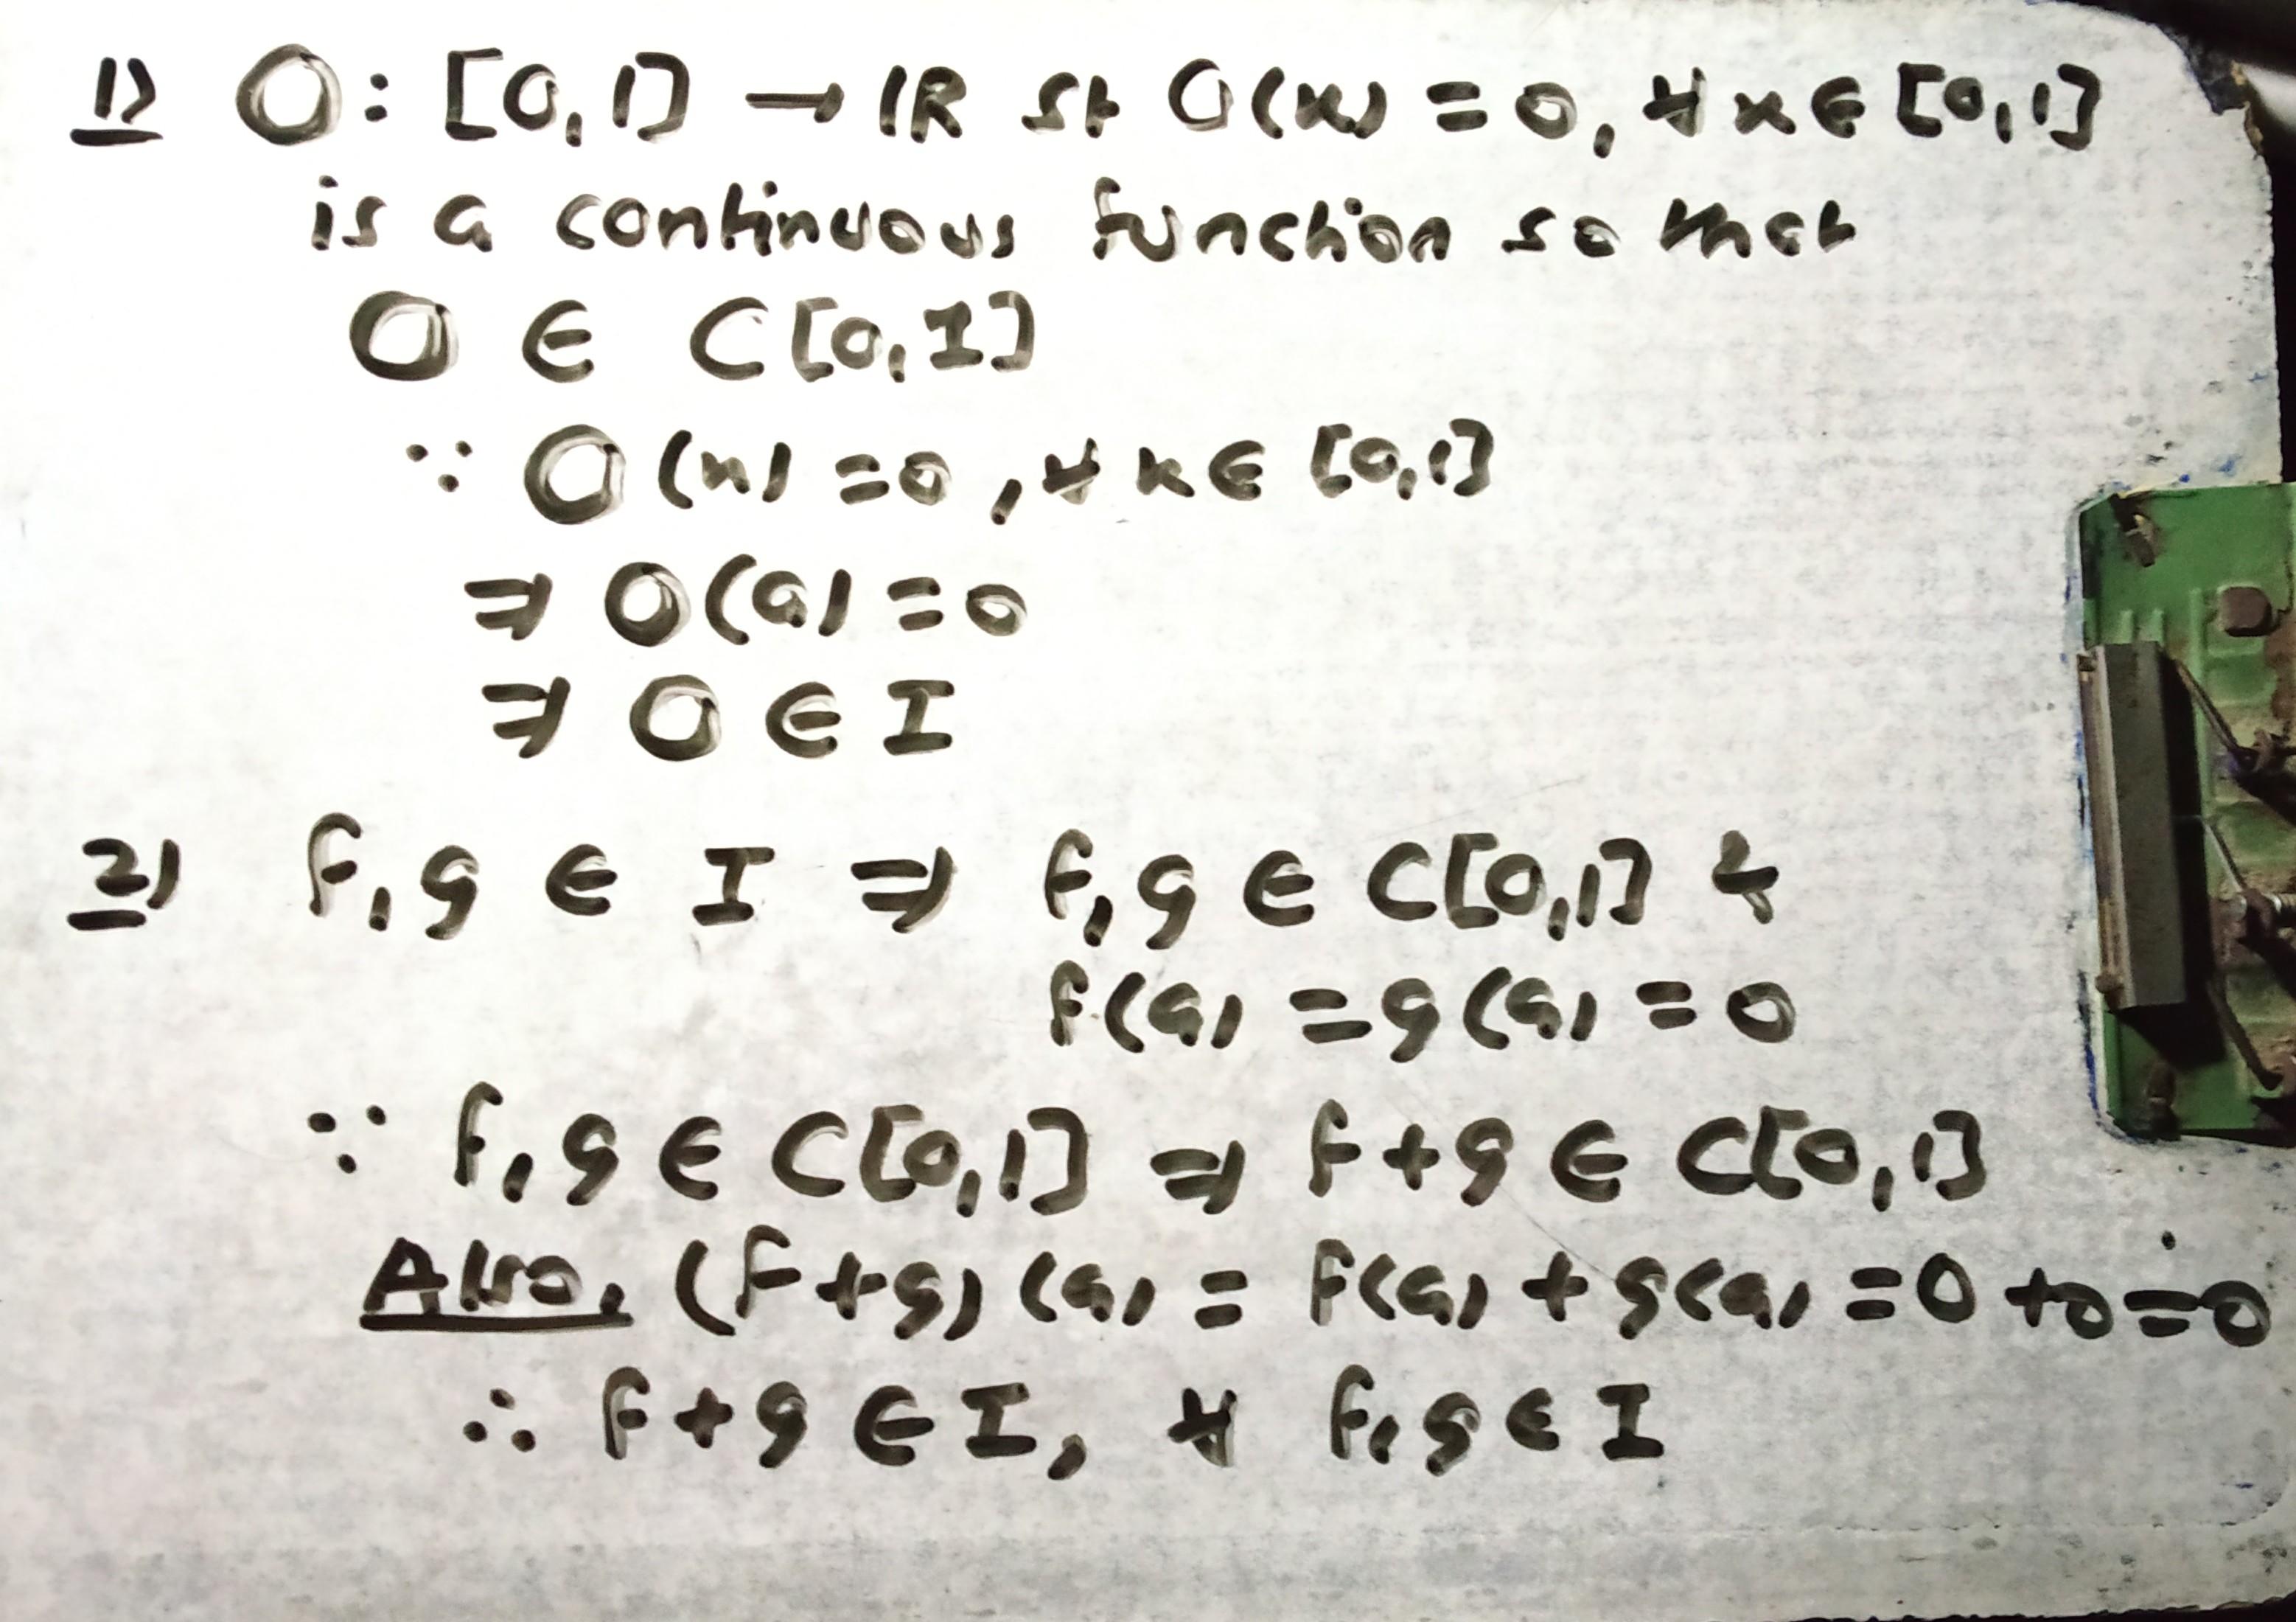 1) O: [0,1] → IR st O(x) = 0, ∀ x ∈ [0,1]
is a continuous function so that
O ∈ C[0,1]
∵ O(x) = 0, ∀ x ∈ [0,1]
⇒ O(a) = 0
⇒ O ∈ I
2) f, g ∈ I ⇒ f, g ∈ C[0,1] &
f(a) = g(a) = 0
∵ f, g ∈ C[0,1] ⇒ f+g ∈ C[0,1]
Also, (f+g)(a) = f(a) + g(a) = 0 + 0 = 0
∴ f+g ∈ I, ∀ f, g ∈ I